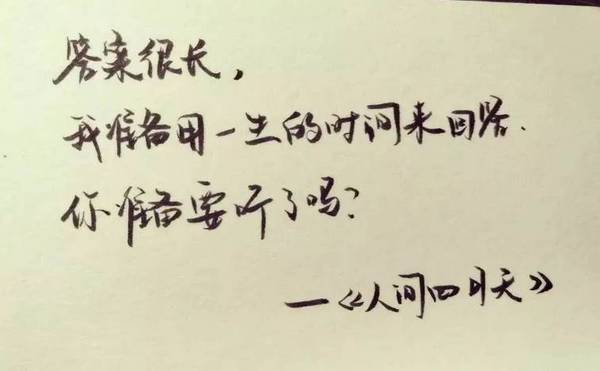 答案很长,
我准备用一生的时间来回答.
你准备要听了吗?
—《人间四月天》